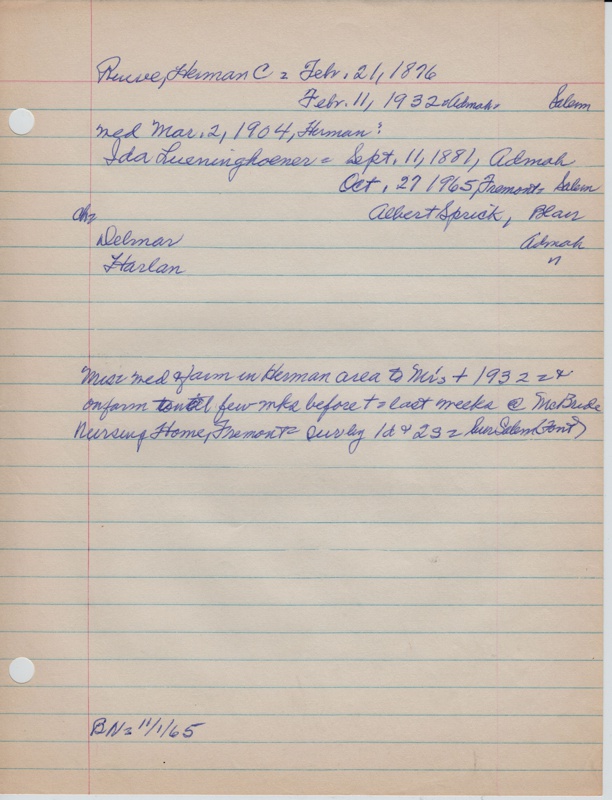 Reeve, Herman C = Febr. 21, 1876
Febr. 11, 1932 = Admah, Salem
med Mar. 2, 1904, Herman:
Ida Lueninghoener = Sept. 11, 1881, Admah
Oct. 27 1965, Fremont = Salem
Ch = Albert Sprick, Blair
Delmar Admah
Harlan "
Misc med & farm in Herman area to Mr's + 1932 = &
on farm until few wks before + = last weeks @ McBride
Nursing Home, Fremont = surv by 1d & 2s = Serv Salem (Font)
BN = 11/1/65